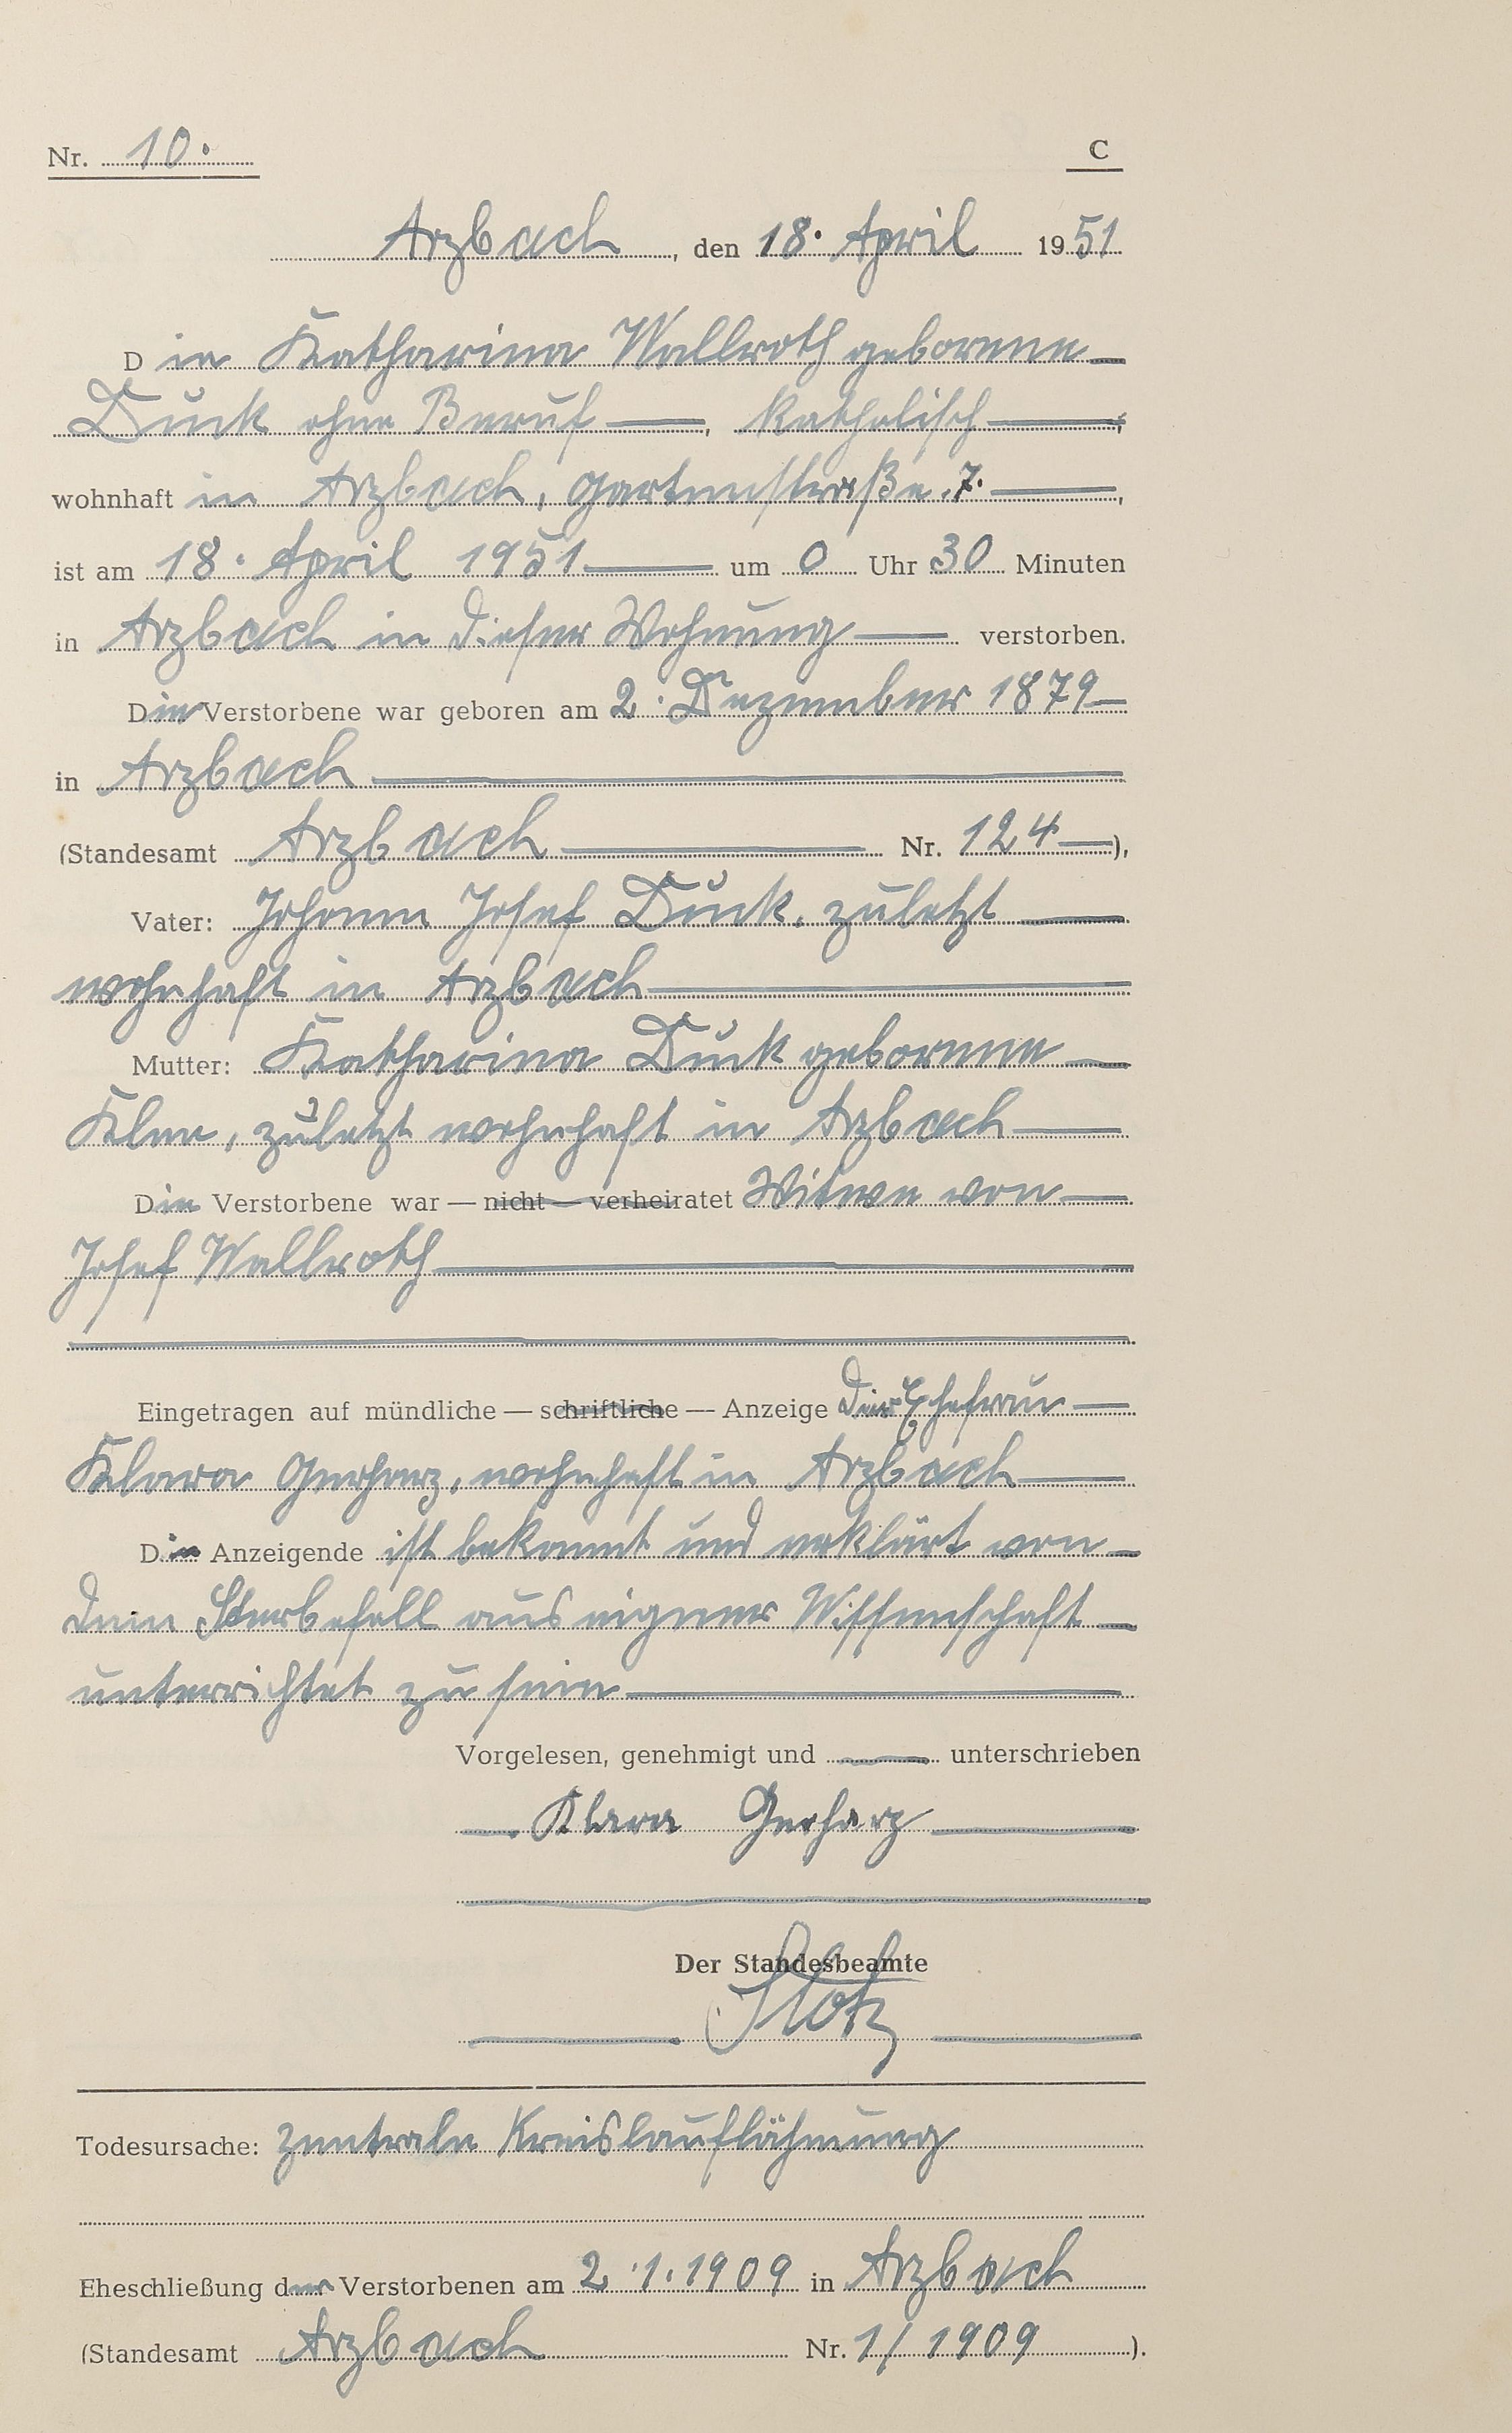 Nr. 10. C
Arzbach, den 18. April 1951
Die Katharina Wallroth geborene
Duck ohne Beruf —, katholisch —,
wohnhaft in Arzbach, Gartenstraße 7. —,
ist am 18. April 1951 — um 0 Uhr 30 Minuten
in Arzbach in dieser Wohnung — verstorben.
Die Verstorbene war geboren am 2. Dezember 1879 —
in Arzbach —
(Standesamt Arzbach — Nr. 124 —),
Vater: Johann Josef Duck, zuletzt —
wohnhaft in Arzbach —
Mutter: Katharina Duck geborene —
Klee, zuletzt wohnhaft in Arzbach —
Die Verstorbene war — nicht — verheiratet Witwe von —
Josef Wallroth —
Eingetragen auf mündliche — schriftliche — Anzeige der Ehefrau —
Klara Gerharz, wohnhaft in Arzbach —
Die Anzeigende ist bekannt und erklärt von —
dem Sterbefall aus eigener Wissenschaft —
unterrichtet zu sein —
Vorgelesen, genehmigt und — unterschrieben
Klara Gerharz
Der Standesbeamte
Stotz
Todesursache: Zentrale Kreislauflähmung
Eheschließung der Verstorbenen am 2.1.1909 in Arzbach
(Standesamt Arzbach Nr. 1/1909).